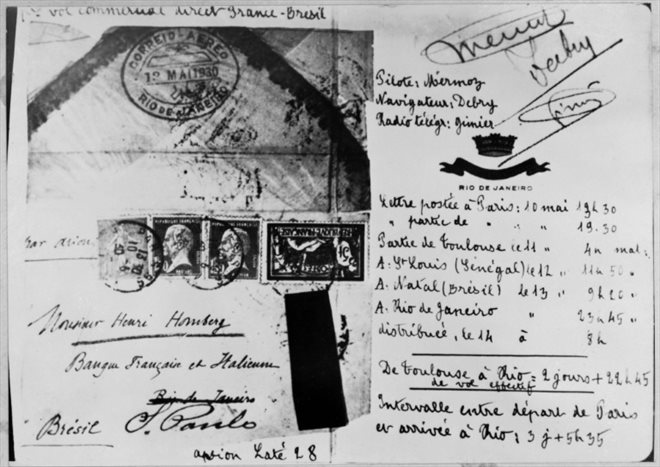 1er vol commercial direct France-Brésil
CORREIO-AEREO
12 MAI 1930
RIO DE JANEIRO
REPUBLIQUE FRANÇAISE
REPUBLIQUE FRANÇAISE
REPUBLIQUE FRANÇAISE
par avion
Monsieur Henri Homberg
Banque Française et Italienne
Rio de Janeiro
Brésil S. Paulo
avion Laté 28
Mermoz
Debry
Gimié
Pilote: Mermoz
Navigateur: Debry
Radio télégr: Gimier
RIO DE JANEIRO
Lettre postée à Paris: 10 mai 13h30
" partie de " " " 19.30
Partie de Toulouse le 11 " 4h mat:
A. St Louis (Sénégal) le 12 " 11h50 "
A. Natal (Brésil) le 13 " 9h20 "
A. Rio de Janeiro " 23h45 "
distribuée, le 14 à 8h
De Toulouse à Rio = 2 jours + 22h45
de vol effectif
Intervalle entre départ de Paris
et arrivée à Rio: 3j + 5h35